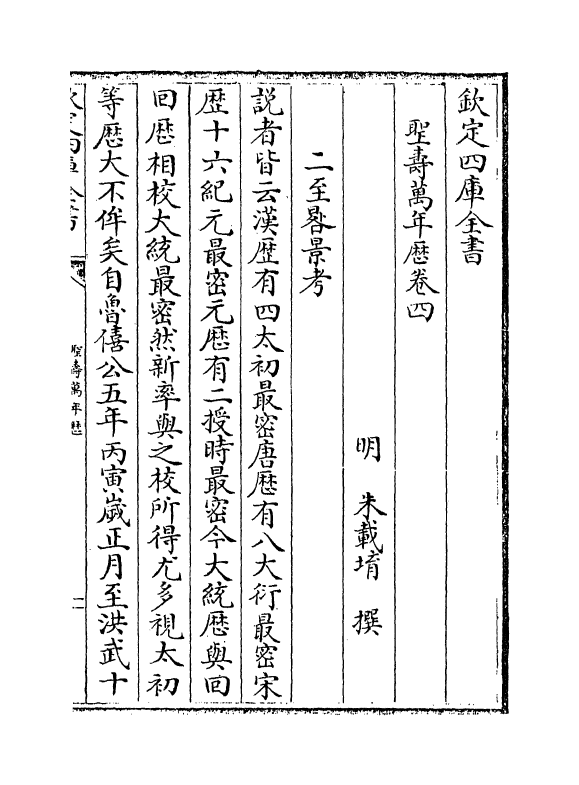 欽定四庫全書
聖壽萬年厯卷四
明 朱載堉 撰
二至晷景考
説者皆云漢厯有四太初最密唐厯有八大衍最密宋
厯十六紀元最密元厯有二授時最密今大統厯與回
回厯相校大統最密然新率與之校所得尤多視太初
等厯大不侔矣自魯僖公五年丙寅嵗正月至洪武十
聖壽萬年厯